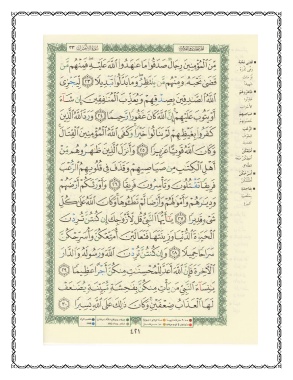 مِّنَ ٱلْمُؤْمِنِينَ رِجَالٌ صَدَقُوا۟ مَا عَٰهَدُوا۟ ٱللَّهَ عَلَيْهِ فَمِنْهُم مَّن
قَضَىٰ نَحْبَهُۥ وَمِنْهُم مَّن يَنتَظِرُ وَمَا بَدَّلُوا۟ تَبْدِيلًا ٢٣ لِّيَجْزِىَ
ٱللَّهُ ٱلصَّٰدِقِينَ بِصِدْقِهِمْ وَيُعَذِّبَ ٱلْمُنَٰفِقِينَ إِن شَآءَ
أَوْ يَتُوبَ عَلَيْهِمْ إِنَّ ٱللَّهَ كَانَ غَفُورًا رَّحِيمًا ٢٤ وَرَدَّ ٱللَّهُ ٱلَّذِينَ
كَفَرُوا۟ بِغَيْظِهِمْ لَمْ يَنَالُوا۟ خَيْرًا وَكَفَى ٱللَّهُ ٱلْمُؤْمِنِينَ ٱلْقِتَالَ
وَكَانَ ٱللَّهُ قَوِيًّا عَزِيزًا ٢٥ وَأَنزَلَ ٱلَّذِينَ ظَٰهَرُوهُم مِّنْ
أَهْلِ ٱلْكِتَٰبِ مِن صَيَاصِيهِمْ وَقَذَفَ فِى قُلُوبِهِمُ ٱلرُّعْبَ
فَرِيقًا تَقْتُلُونَ وَتَأْسِرُونَ فَرِيقًا ٢٦ وَأَوْرَثَكُمْ أَرْضَهُمْ
وَدِيَٰرَهُمْ وَأَمْوَٰلَهُمْ وَأَرْضًا لَّمْ تَطَـُٔوهَا وَكَانَ ٱللَّهُ عَلَىٰ كُلِّ
شَىْءٍ قَدِيرًا ٢٧ يَٰٓأَيُّهَا ٱلنَّبِىُّ قُل لِّأَزْوَٰجِكَ إِن كُنتُنَّ تُرِدْنَ
ٱلْحَيَوٰةَ ٱلدُّنْيَا وَزِينَتَهَا فَتَعَالَيْنَ أُمَتِّعْكُنَّ وَأُسَرِّحْكُنَّ
سَرَاحًا جَمِيلًا ٢٨ وَإِن كُنتُنَّ تُرِدْنَ ٱللَّهَ وَرَسُولَهُۥ وَٱلدَّارَ
ٱلْءَاخِرَةَ فَإِنَّ ٱللَّهَ أَعَدَّ لِلْمُحْسِنَٰتِ مِنكُنَّ أَجْرًا عَظِيمًا ٢٩
يَٰنِسَآءَ ٱلنَّبِىِّ مَن يَأْتِ مِنكُنَّ بِفَٰحِشَةٍ مُّبَيِّنَةٍ يُضَٰعَفْ
لَهَا ٱلْعَذَابُ ضِعْفَيْنِ وَكَانَ ذَٰلِكَ عَلَى ٱللَّهِ يَسِيرًا ٣٠
٤٢١